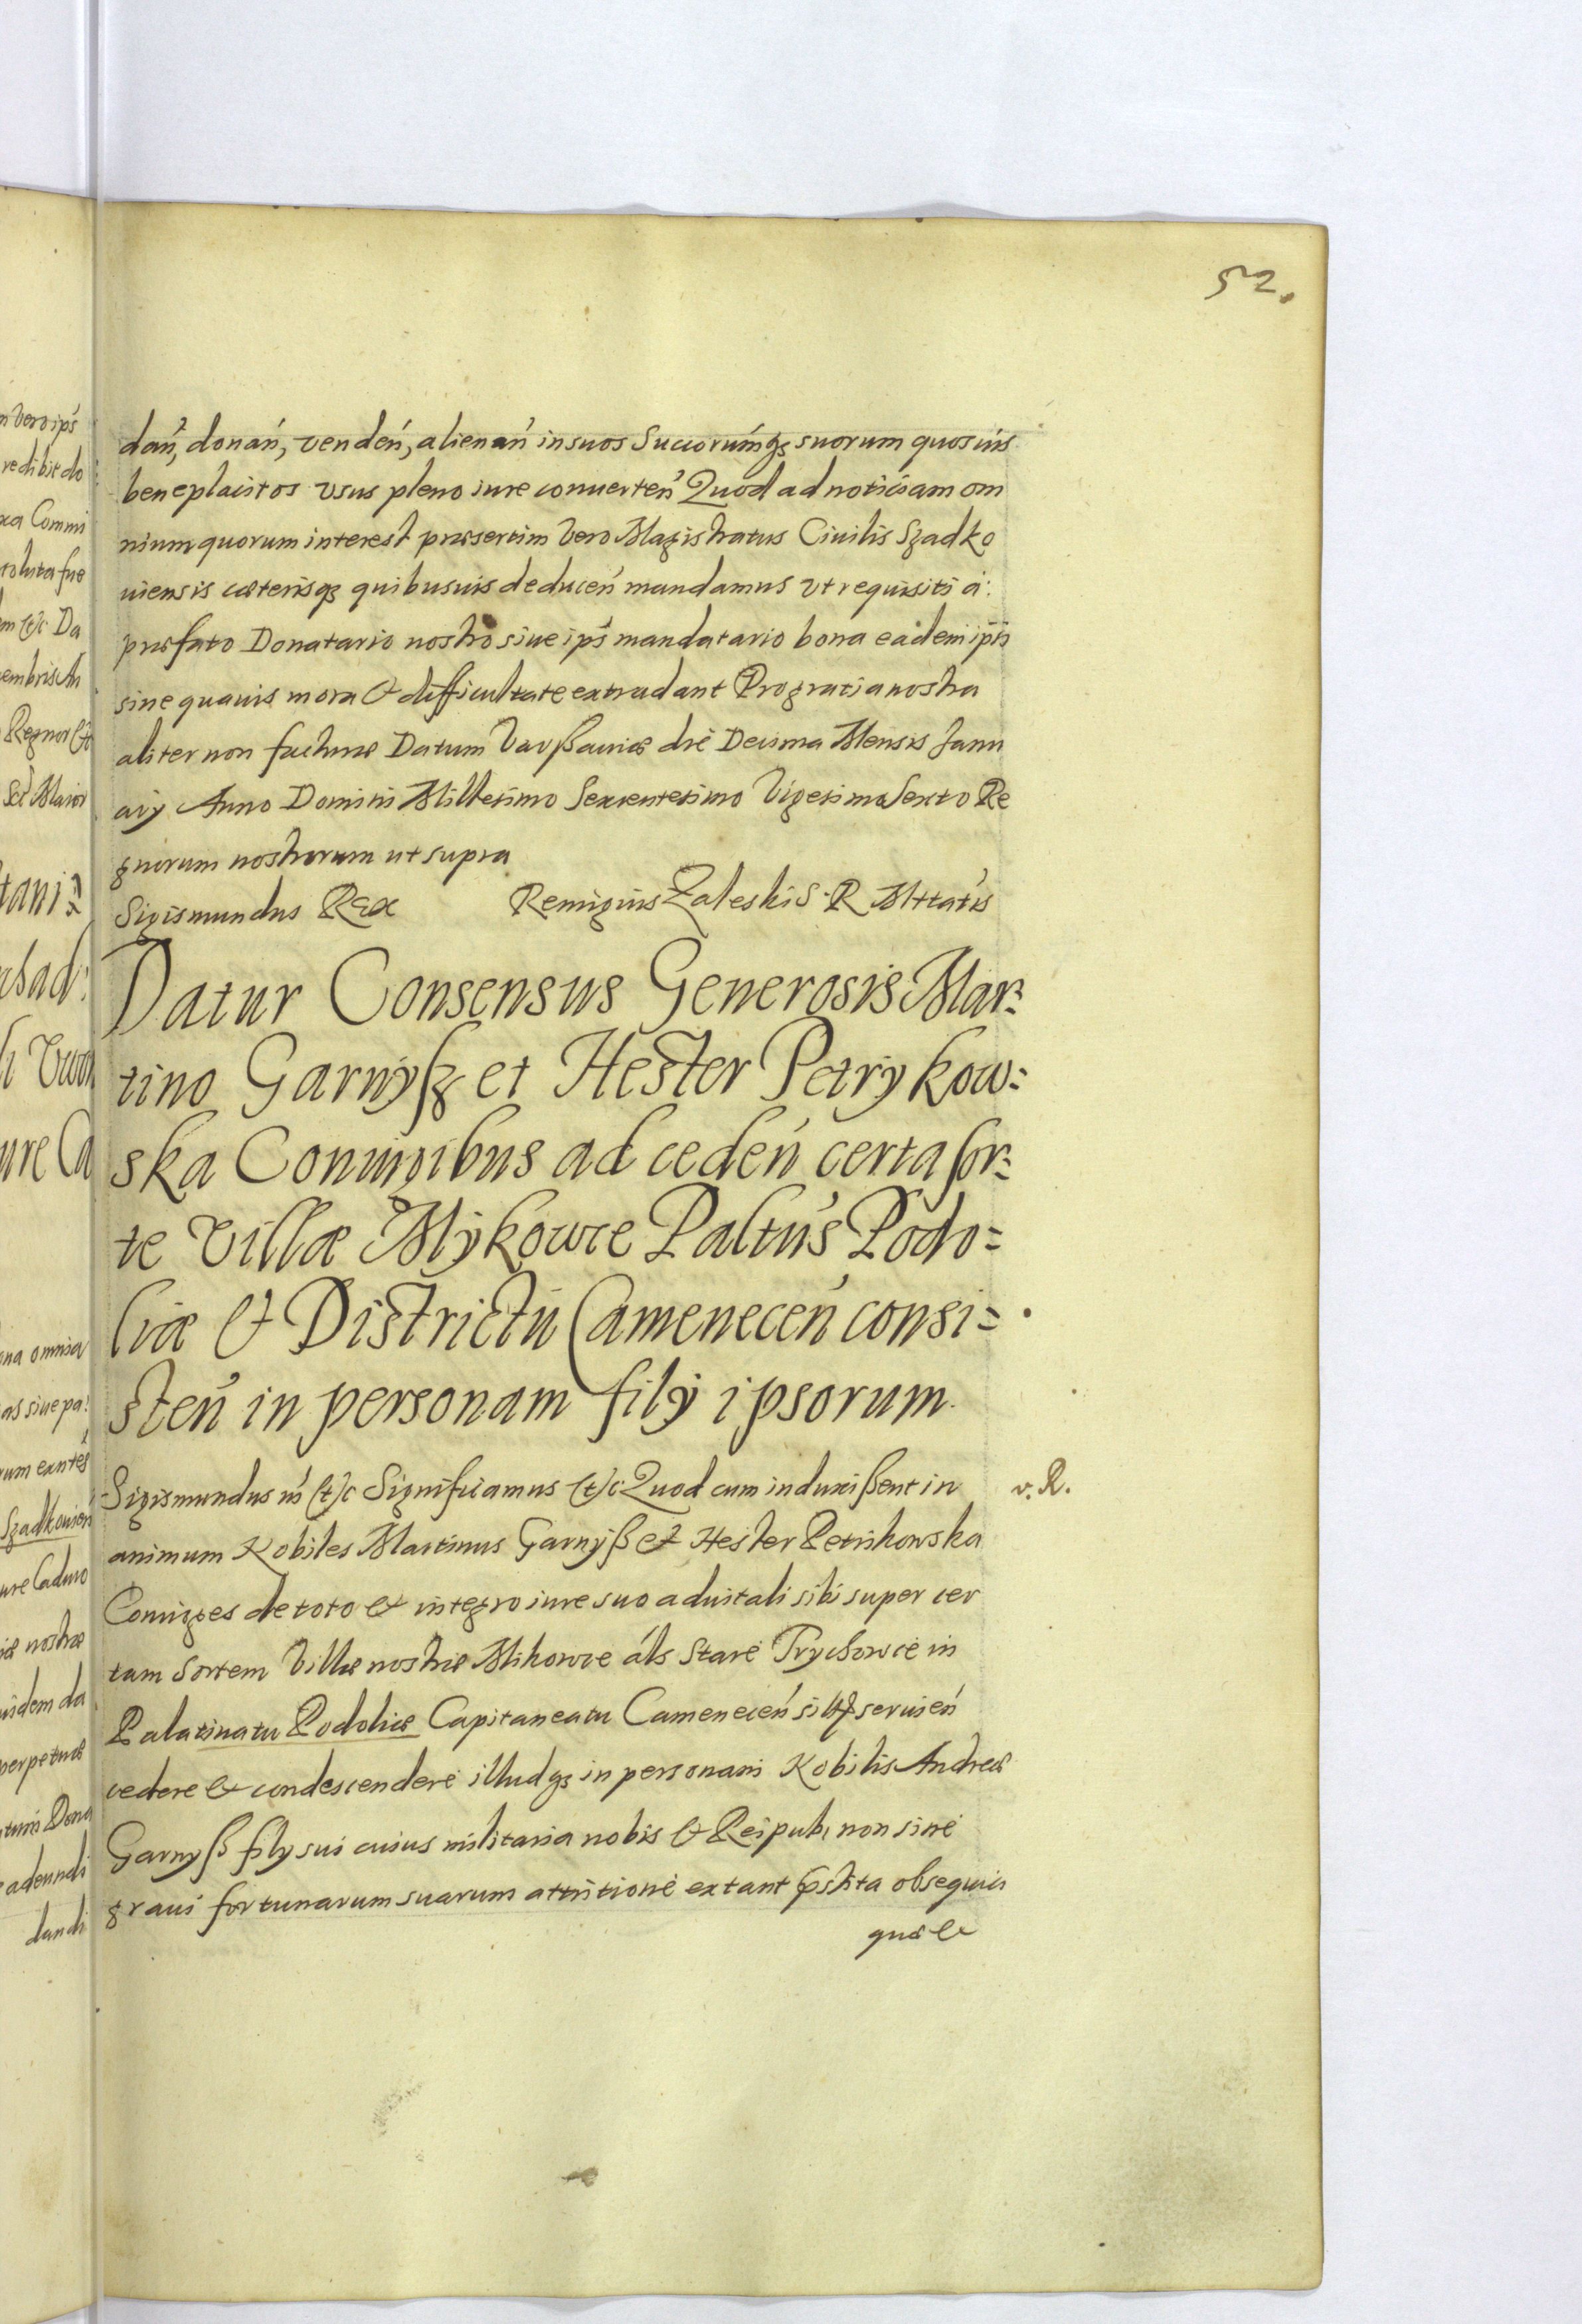 52.
dań, donań, vendeń, alienań in suos Successorumqz suorum quosuis
beneplacitos vsus pleno iure conuerteń Quod ad noticiam om
nium quorum interest præsertim vero Magistratus Ciuilis Szadko
uiensis cæterisqz quibusuis deduceń mandamus vt requisiti a:
præfato Donatario nostro siue ips mandatario bona eadem ipsi
sine quauis mora & difficultate extradant Pro gratia nostra
aliter non facturæ Datum Varßauiæ die Decima Mensis Janu
arij Anno Domini Millesimo Sexcentesimo Vigesimo Sexto Re
gnorum nostrorum ut supra
Sigismundus Rex Remigius Zaleski S. R. Mttatis
Datur Consensus Generosis Mar=
tino Garnyſz et Hester Petrykow=
ska Coniugibus ad cedeń certa sor=
te Villæ Mykowce Paltus Podo=
liæ & Districtu Cameneceń consi=
steń in personam filij ipsorum.
Sigismundus ııs (t)c Significamus (t)c Quod cum induxißent in
v. R.
animum Nobiles Martinus Garnyß et Hester Petrikowska
Coniuges de toto & integro iure suo aduitali sibi super cer
tam Sortem Villæ nostræ Mikowce als Stare Trychowce in
Palatinatu Podoliæ Capitaneatu Cameneceń sitæ seruień
cedere & condescendere illudqz in personam Nobilis Andreæ
Garnyß filij sui cuius militaria nobis & Reipub, non sine
graui fortunarum suarum attritione extant præstita obsequia
quæ &